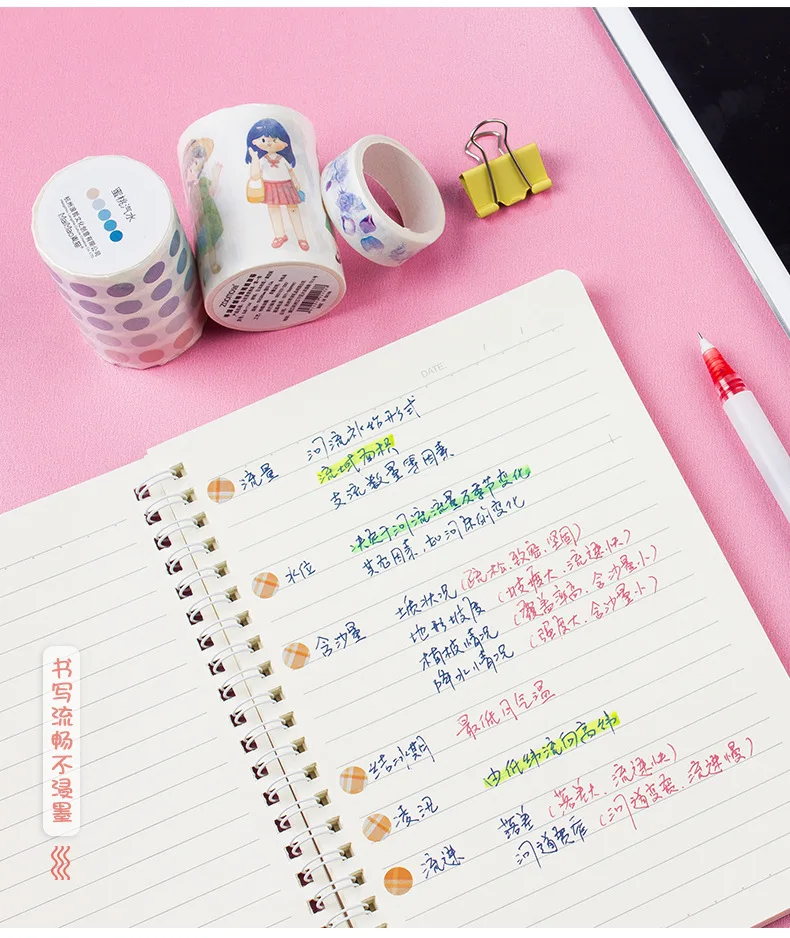 蜜桃汽水
DATE.
河流补给形式
流量
流域面积
支流数量等因素
决定于河流流量及季节变化
水位
其它因素,如河床的变化
含沙量
土壤状况(疏松,致密,坚固)
地形坡度(坡度大,流速快)
植被情况(覆盖率高,含沙量小)
降水情况(强度大,含沙量小)
结冰期
最低月气温
凌汛
由低纬流向高纬
流速
落差(落差大,流速快)
河道宽窄(河道变宽,流速慢)
书写流畅不浸墨